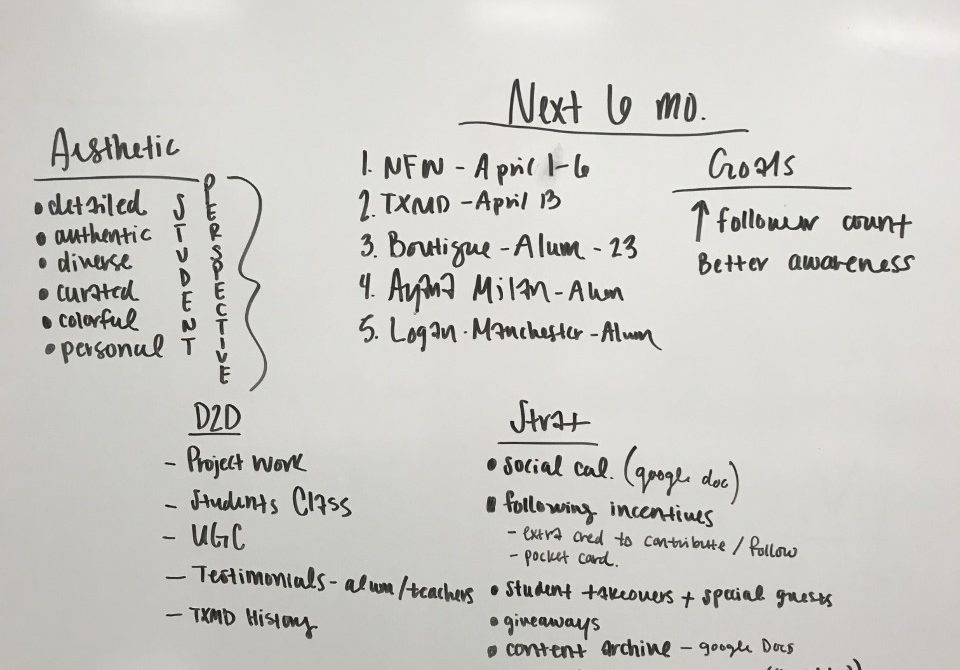 Next 6 mo.
Aesthetic
• detailed
• authentic
• diverse
• curated
• colorful
• personal
STUDENT
PERSPECTIVE
1. NFW - April 1-6
2. TXMD - April 13
3. Boutique - Alum - 23
4. Ayana Milan - Alum
5. Logan - Manchester - Alum
Goals
↑ follower count
Better awareness
D2D
- Project Work
- Students Class
- UGC
- Testimonials - alum/teachers
- TXMD History
Strat
• social cal. (google doc)
• following incentives
- extra cred to contribute / follow
- pocket card.
• student takeovers + special guests
• giveaways
• content archive - google Docs